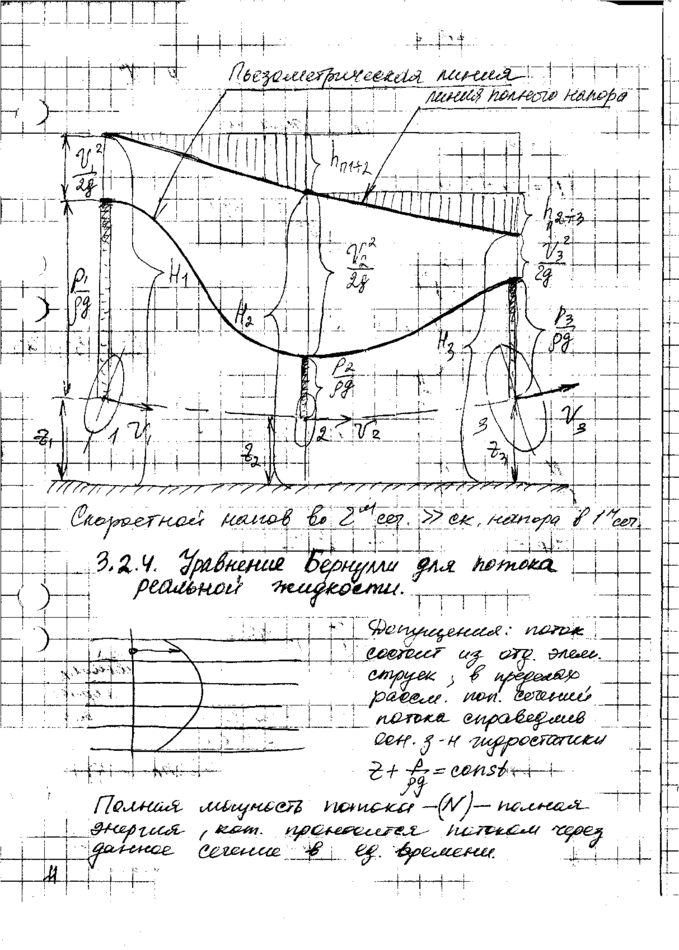 Пьезометрическая линия
линия полного напора
V₁²/2g
hп1÷2
hп2÷3
V₂²/2g
V₃²/2g
P₁/ρg
H₁
H₂
H₃
P₂/ρg
P₃/ρg
1
V₁
2
V₂
3
V₃
z₁
z₂
z₃
Скоростной напов во 2ом сеч. >> ск. напора в 1м сеч.
3.2.4. Уравнение Бернулли для потока
реальной жидкости.
Допущения: поток
состоит из отд. элем.
струек, в пределах
рассм. поп. сечений
потока справедлив
осн. з-н гидростатики
z + P/ρg = const
Полная мощность потока —(N)— полная
энергия, кот. проносится потоком через
данное сечение в ед. времени.